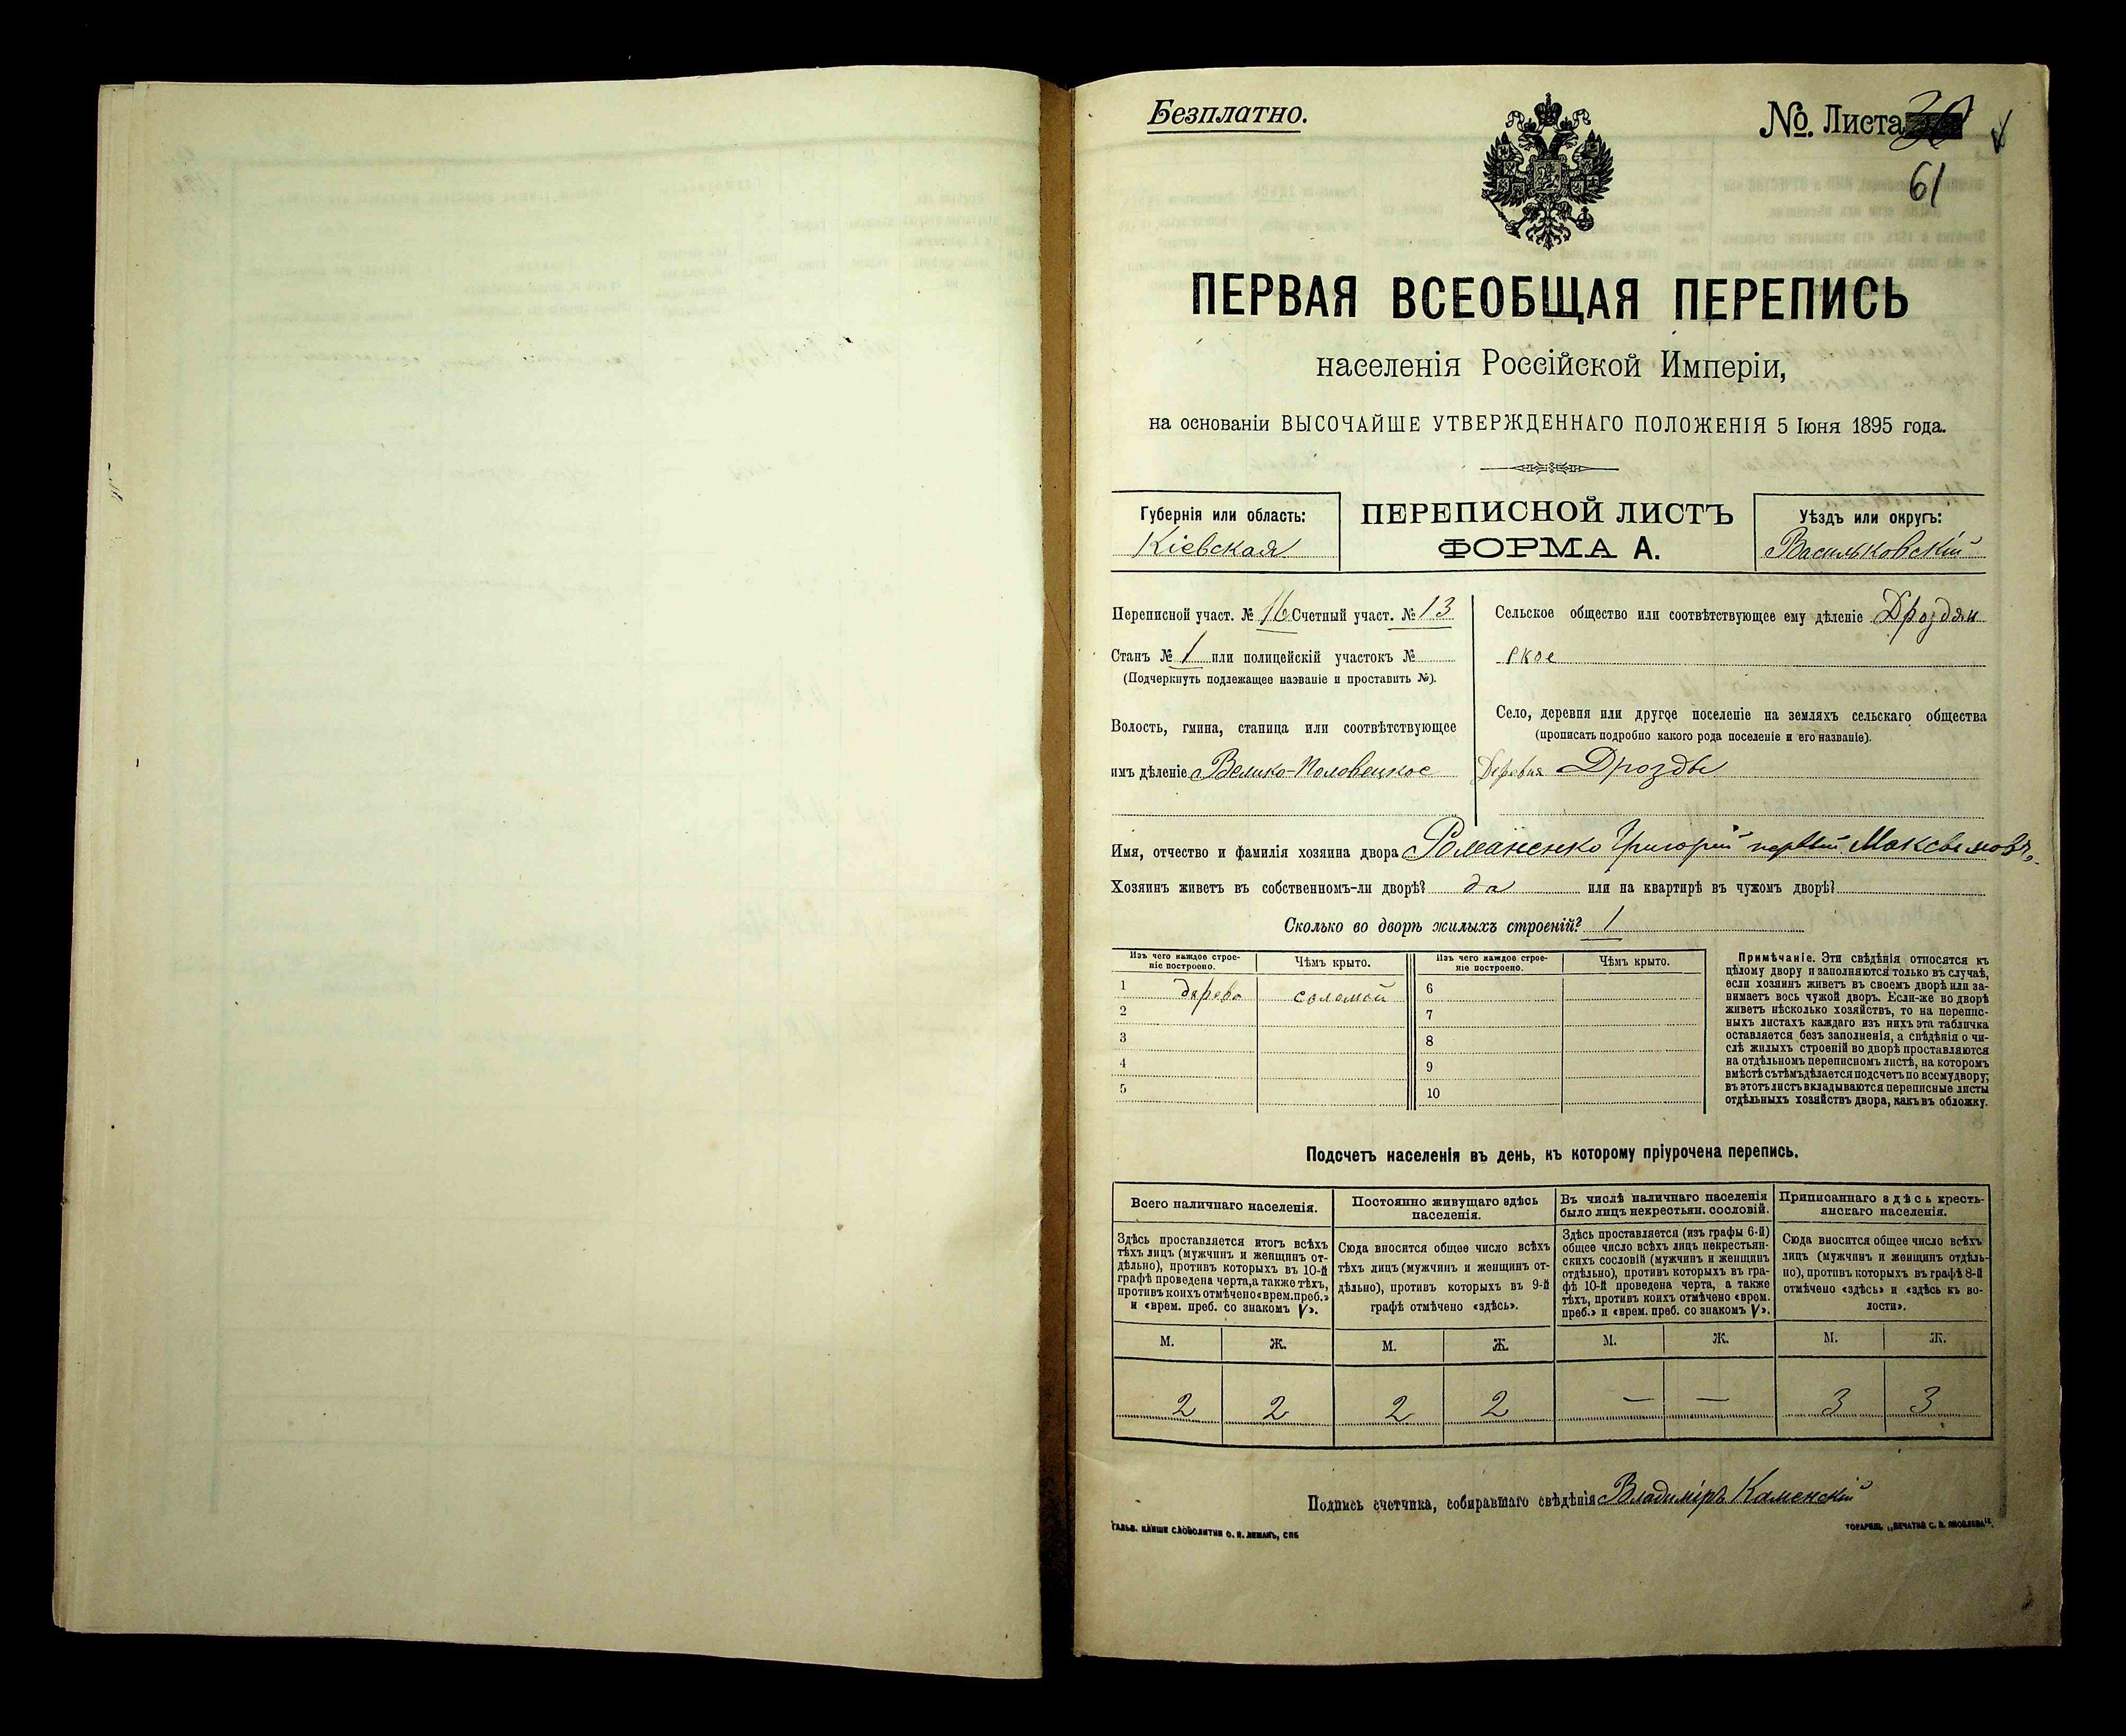 Безплатно.
№. Листа
61
ПЕРВАЯ ВСЕОБЩАЯ ПЕРЕПИСЬ
населенія Россійской Имперіи,
на основаніи ВЫСОЧАЙШЕ УТВЕРЖДЕННАГО ПОЛОЖЕНІЯ 5 Іюня 1895 года.
Губернія или область:
Кіевская
ПЕРЕПИСНОЙ ЛИСТЪ
ФОРМА А.
Уѣздъ или округъ:
Васильковскій
Переписной участ. № 16 Счетный участ. № 13
Станъ № 1 или полицейскій участокъ №
(Подчеркнуть подлежащее названіе и проставить №).
Волость, гмина, станица или соотвѣтствующее
имъ дѣленіе Велико-Половецкое
Сельское общество или соотвѣтствующее ему дѣленіе Дроздян
ское
Село, деревня или другое поселеніе на земляхъ сельскаго общества
(прописать подробно какого рода поселеніе и его названіе).
Деревня Дрозды
Имя, отчество и фамилія хозяина двора Романенко Григорій первый Максимовъ
Хозяинъ живетъ въ собственномъ-ли дворѣ? да или на квартирѣ въ чужомъ дворѣ?
Сколько во дворѣ жилыхъ строеній? 1
Изъ чего каждое строе-
ніе построено.
Чѣмъ крыто.
Изъ чего каждое строе-
ніе построено.
Чѣмъ крыто.
1 дерево соломой 6
2 7
3 8
4 9
5 10
Примѣчаніе. Эти свѣдѣнія относятся къ
цѣлому двору и заполняются только въ случаѣ,
если хозяинъ живетъ въ своемъ дворѣ или за-
нимаетъ весь чужой дворъ. Если-же во дворѣ
живетъ нѣсколько хозяйствъ, то на перепис-
ныхъ листахъ каждаго изъ нихъ эта табличка
оставляется безъ заполненія, а свѣдѣнія о чи-
слѣ жилыхъ строеній во дворѣ проставляются
на отдѣльномъ переписномъ листѣ, на которомъ
вмѣстѣ съ тѣмъ дѣлается подсчетъ по всему двору;
въ этотъ листъ вкладываются переписные листы
отдѣльныхъ хозяйствъ двора, какъ въ обложку.
Подсчетъ населенія въ день, къ которому пріурочена перепись.
Всего наличнаго населенія.
Здѣсь проставляется итогъ всѣхъ
тѣхъ лицъ (мужчинъ и женщинъ от-
дѣльно), противъ которыхъ въ 10-й
графѣ проведена черта, а также тѣхъ,
противъ коихъ отмѣчено «врем. преб.»
и «врем. преб. со знакомъ V».
Постоянно живущаго здѣсь
населенія.
Сюда вносится общее число всѣхъ
тѣхъ лицъ (мужчинъ и женщинъ от-
дѣльно), противъ которыхъ въ 9-й
графѣ отмѣчено «здѣсь».
Въ числѣ наличнаго населенія
было лицъ некрестьян. сословій.
Здѣсь проставляется (изъ графы 6-й)
общее число всѣхъ лицъ некрестьян-
скихъ сословій (мужчинъ и женщинъ
отдѣльно), противъ которыхъ въ гра-
фѣ 10-й проведена черта, а также
тѣхъ, противъ коихъ отмѣчено «врем.
преб.» и «врем. преб. со знакомъ V».
Приписаннаго здѣсь кресть-
янскаго населенія.
Сюда вносится общее число всѣхъ
лицъ (мужчинъ и женщинъ отдѣль-
но), противъ которыхъ въ графѣ 8-й
отмѣчено «здѣсь» и «здѣсь къ во-
лости».
М. Ж. М. Ж. М. Ж. М. Ж.
2 2 2 2 — — 3 3
Подпись счетчика, собиравшаго свѣдѣнія Владиміръ Каменскій
ГАЛЬВ. КЛИШЕ СЛОВОЛИТНИ О. И. ЛЕМАНЪ, СПБ
ТОВАРИЩ. „ПЕЧАТНЯ С. П. ЯКОВЛЕВА“.